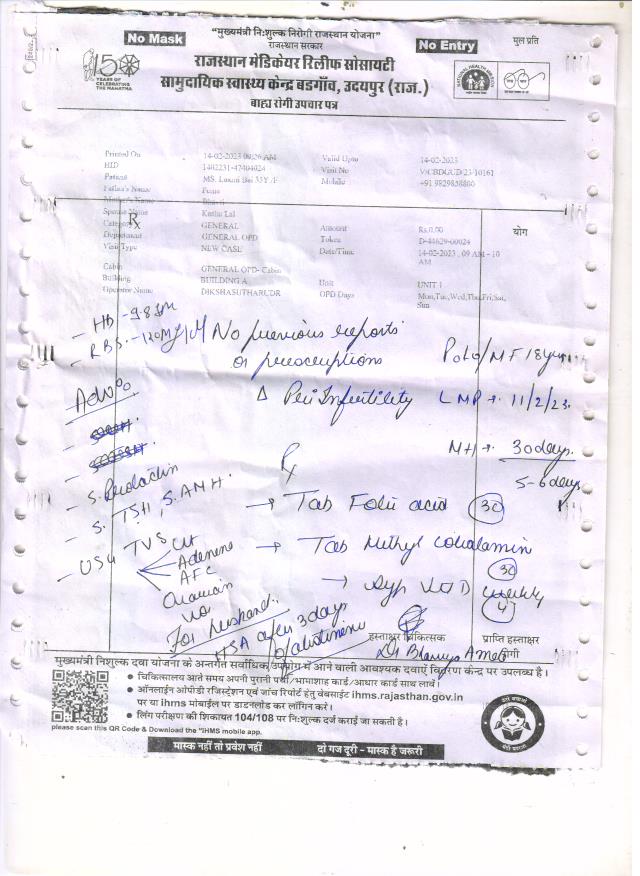 "मुख्यमंत्री निःशुल्क निरोगी राजस्थान योजना"
No Mask
राजस्थान सरकार
No Entry
मुल प्रति
150
YEARS OF
CELEBRATING
THE MAHATMA
राजस्थान मेडिकेयर रिलीफ सोसायटी
सामुदायिक स्वास्थ्य केन्द्र बडगाँव, उदयपुर (राज.)
बाह्य रोगी उपचार पत्र
Printed On 14-02-2023 09:26 AM Valid Upto 14-02-2023
HID 1402231-47404024 Visit No
Patient MS. Laxmi Bai 35Y /F Mobile
Father's Name
Mother's Name
Spouse Name Lal
Category GENERAL Amount Rs.0.00
Rx
योग
Department GENERAL OPD Token D-44629-00024
Visit Type NEW CASE Date/Time 14-02-2023 , 09 AM - 10 AM
Cabin GENERAL OPD- Cabin
Building BUILDING A Unit UNIT 1
Operator Name DIKSHASUTHARUDR OPD Days Mon,Tue,Wed,Thu,Fri,Sat,Sun
- HB - 9.8 gm
- RBS - 120 Mg/dl
No previous reports
or prescriptions
P0L0/MF 18 yrs
Adv
Δ Pri Infertility LMP → 11/2/23
MH → 30 days
5-6 days
- S. Prolactin
- S. TSH, S. AMH
Rx
→ Tab Folic acid (30)
- USG TVS
AFC
Ovarian
→ Tab Methyl cobalamin (30)
→ Syp Vit D weekly (4)
For husband:
HSA after 3 days
of abstinence
हस्ताक्षर चिकित्सक
प्राप्ति हस्ताक्षर
रोगी
मुख्यमंत्री निशुल्क दवा योजना के अन्तर्गत सर्वाधिक उपयोग में आने वाली आवश्यक दवाएँ वितरण केन्द्र पर उपलब्ध है।
• चिकित्सालय आते समय अपनी पुरानी पर्ची/भामाशाह कार्ड/आधार कार्ड साथ लावें।
• ऑनलाईन ओपीडी रजिस्ट्रेशन एवं जांच रिपोर्ट हेतु वेबसाईट ihms.rajasthan.gov.in
पर या ihms मोबाईल पर डाडनलोड कर लॉगिन करें।
• लिंग परीक्षण की शिकायत 104/108 पर निःशुल्क दर्ज कराई जा सकती है।
please scan this QR Code & Download the "IHMS mobile app.
मास्क नहीं तो प्रवेश नहीं
दो गज दूरी - मास्क है जरूरी
बेटी बचाओ